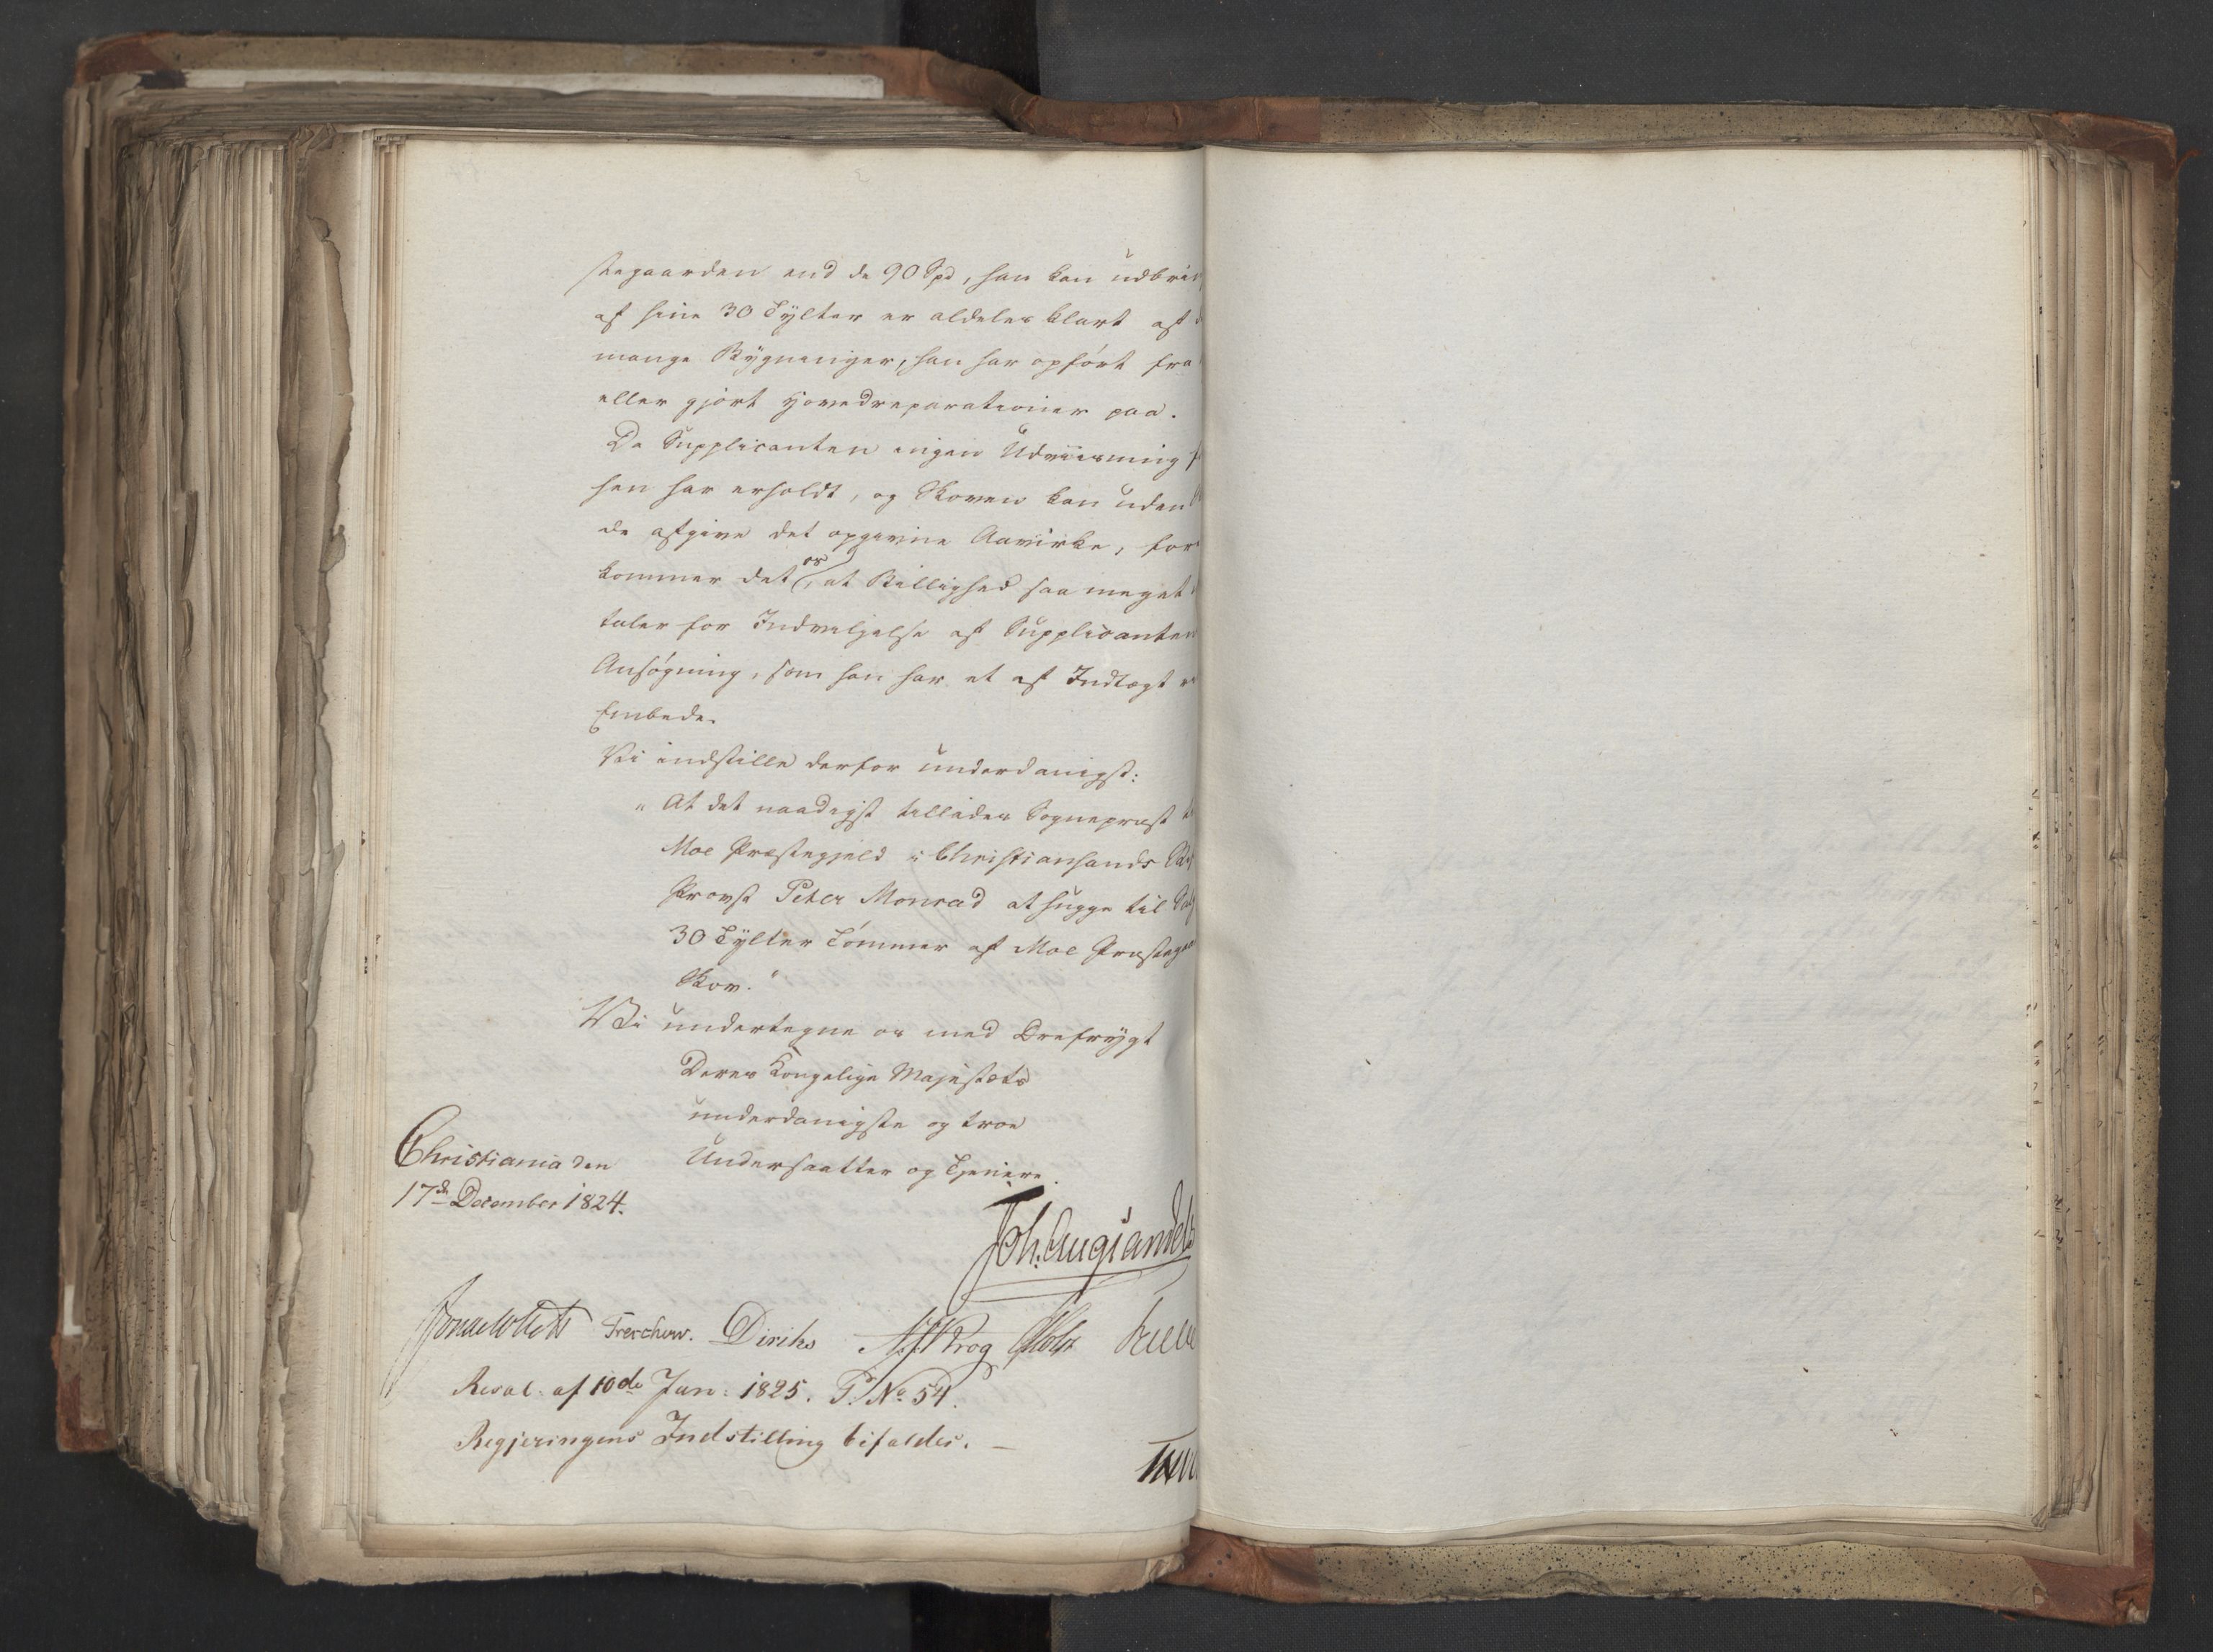 stegaarden end de 90 Spd, han kan udbrin
af sine 30 Tylter er aldeles klart af d
mange Bygninger, han har opført fra
eller gjort Hovedreparationer paa.
Da Supplicanten ingen Udviisning
han har erholdt, og Skoven kan uden
de afgive det opgivne Aavirke, fore
kommer det os, at Billighed saa meget
taler for Indvilgelse af Supplicanten
Ansøgning, som han har et af Indtægt
Embede.
Vi indstille derfor underdanigst:
"At det naadigst tillades Sognepræst
Moe Præstegjeld i Christiansands
Provst Peter Monrad at hugge til
30 Tylter Tømmer af Moe Præstegaa
Skov."
Vi undertegne os med Ærefrygt
Deres Kongelige Majestæts
underdanigste og troe
Undersaatter og Tjenere.
Christiania den
17de December 1824.
Joh: Aug: Sandels
Jonas Collett Treschow. Diriks Krog Holst
Resol: af 10de Jan: 1825. P: No 54.
Regjeringens Indstilling bifaldes.